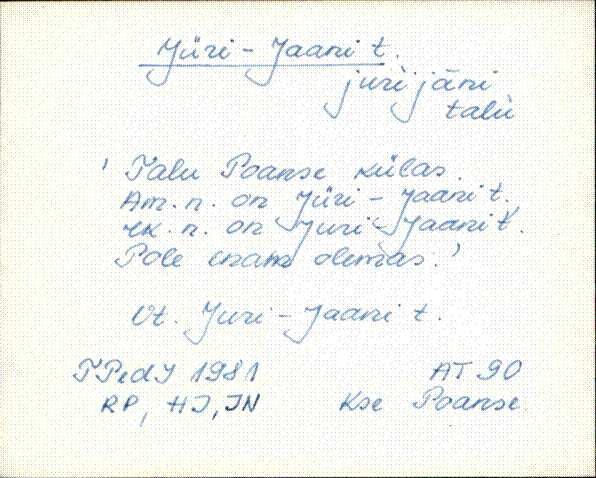 Jüri-Jaani t.
juri jāni
talu
' Talu Poanse külas.
Am.n. on Jüri-Jaani t.,
rk.n. on Juri-Jaani t.
Pole enam olemas.'
Vt. Juri-Jaani t.
TPedI 1981 AT 90
RP, HJ, JN Kse Poanse